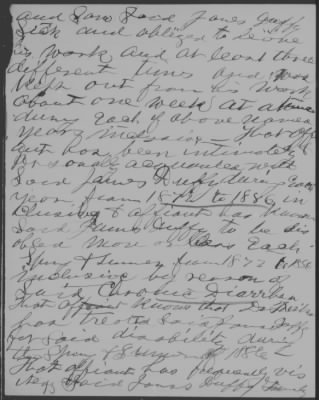 and Saw Said James Duffy
Sick and obliged to leave
his work and at least three
different times and was
kept out from his work
about one week at a time
during Each of above named
years
has been intimately
personally acquainted with
Said James Duffy during Each
Year from 1872 to 1886 in
clusive & affiant has known
Said James Duffy to be dis
abled more or less Each
Spring & Summer from 1872 to 1886
inclusive by reason of
Said Chronic Diarrhea
that affiant knows that Dr
has treated Said James Duffy
for Said disability during
the Spring & Summer of 1886
that affiant has frequently vis
Said James Duffy family